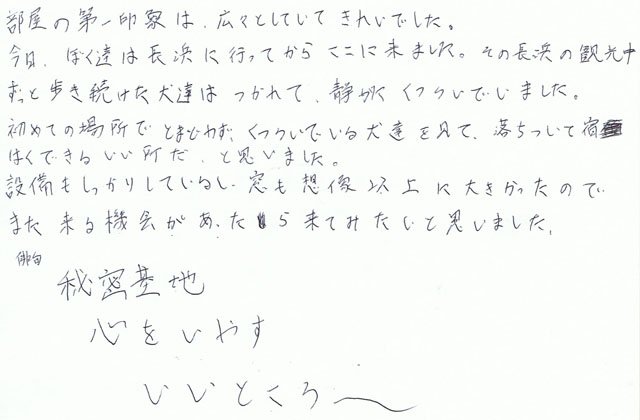 部屋の第一印象は、広々としていて きれいでした。
今日、ぼく達は長浜に行ってから ここに来ました。その長浜の観光中
ずっと歩き続けた犬達は つかれて、静かに くつろいでいました。
初めての場所で とまどわず、くつろいでいる犬達を見て、落ちついて宿
はくできるいい所だ、と思いました。
設備もしっかりしているし、窓も想像以上に大きかったので
また来る機会があったら来てみたいと思いました。
俳句
秘密基地
心をいやす
いいところ〜